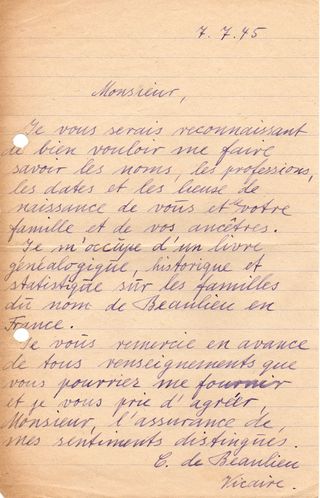 7. 7. 45
Monsieur,
Je vous serais reconnaissant
de bien vouloir me faire
savoir les noms, les professions,
les dates et les lieuse de
naissance de vous et de votre
famille et de vos ancêtres.
Je m'occupe d'un livre
généalogique, historique et
statistique sur les familles
du nom de Beaulieu en
France.
Je vous remercie en avance
de tous renseignements que
vous pourriez me fournir
et je vous prie d'agréer,
Monsieur, l'assurance de,
mes sentiments distingués.
C. de Beaulieu
Vicaire.